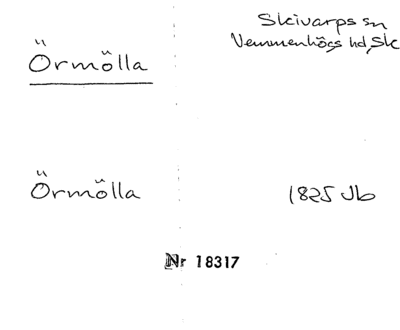 Örmölla
Skivarps sn
Vemmenhögs hd, Sk
Örmölla
1825 Jb
Nr 18317